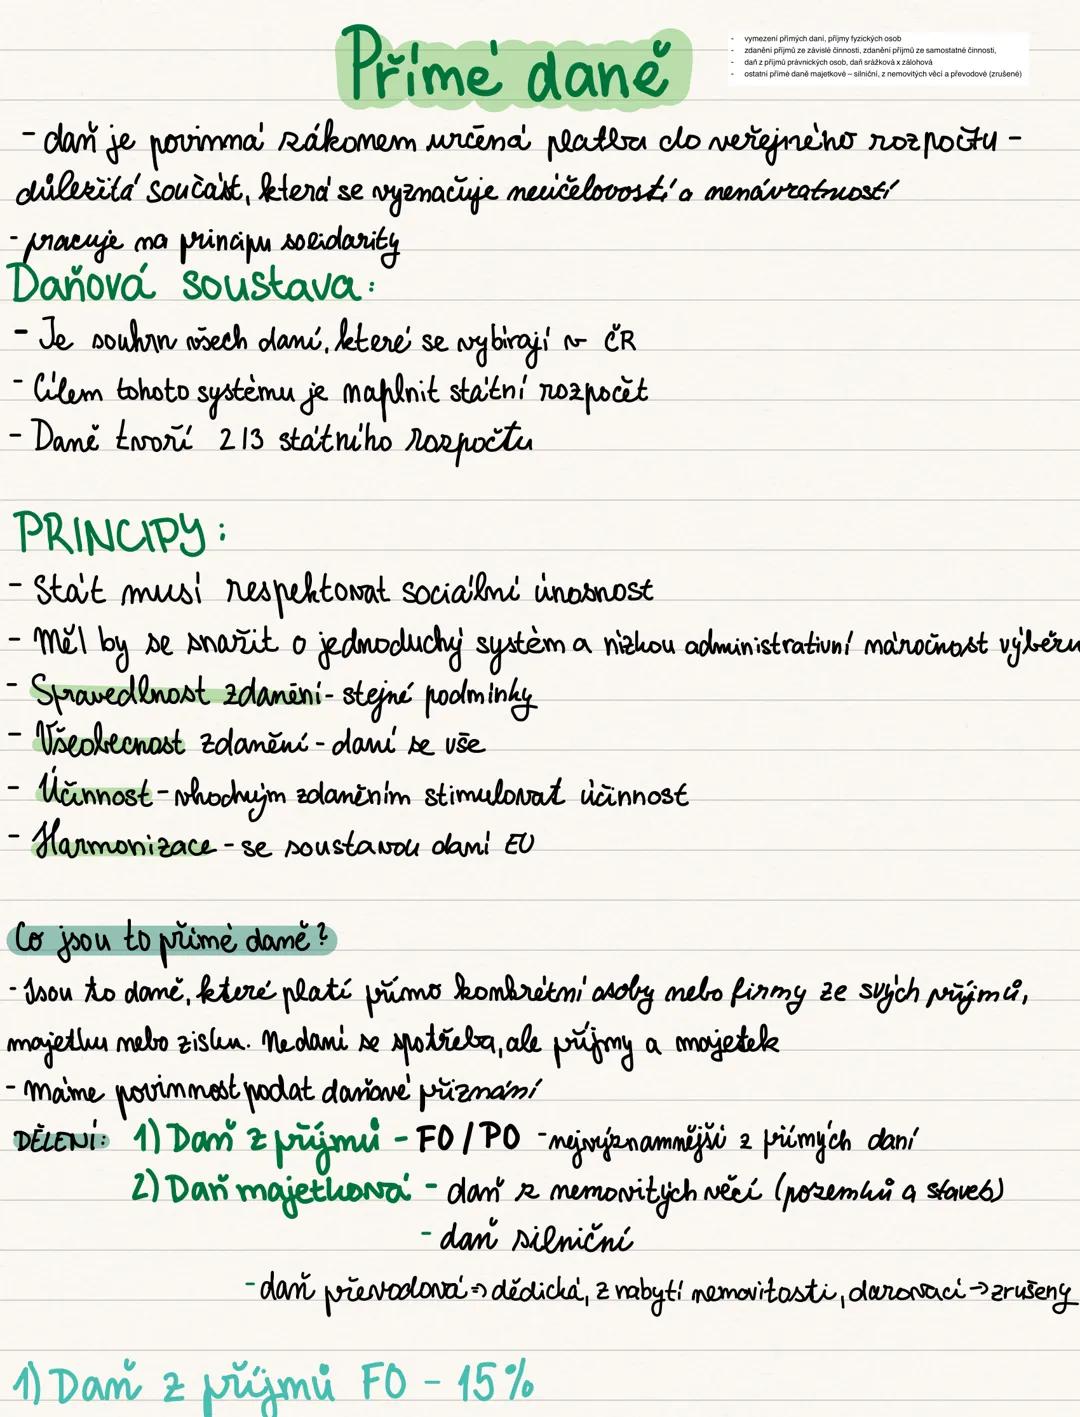 Přímé daně
- vymezení přímých daní, příjmy fyzických osob
- zdanění příjmů ze závislé činnosti, zdanění příjmů ze samostatné činnosti,
- daň z příjmů právnických osob, daň srážková x zálohová
- ostatní přímé daně majetkové – silniční, z nemovitých věcí a převodové (zrušené)
- daň je povinná zákonem určená platba do veřejného rozpočtu -
důležitá součást, která se vyznačuje neúčelovostí a nenávratností
- pracuje na principu solidarity
Daňová soustava:
- Je souhrn všech daní, které se vybírají v ČR
- Cílem tohoto systému je naplnit státní rozpočet
- Daně tvoří 2/3 státního rozpočtu
PRINCIPY:
- Stát musí respektovat sociální únosnost
- Měl by se snažit o jednoduchý systém a nízkou administrativní náročnost výběru
- Spravedlnost zdanění - stejné podmínky
- Všeobecnost zdanění - daní se vše
- Účinnost - vhodným zdaněním stimulovat účinnost
- Harmonizace - se soustavou daní EU
Co jsou to přímé daně?
- Jsou to daně, které platí přímo konkrétní osoby nebo firmy ze svých příjmů,
majetku nebo zisku. Nedaní se spotřeba, ale příjmy a majetek
- Máme povinnost podat daňové přiznání
DĚLENÍ: 1) Daň z příjmů - FO / PO - nejvýznamnější z přímých daní
2) Daň majetková - daň z nemovitých věcí (pozemků a staveb)
- daň silniční
- daň převodová => dědická, z nabytí nemovitosti, darovací → zrušeny
1) Daň z příjmů FO - 15%